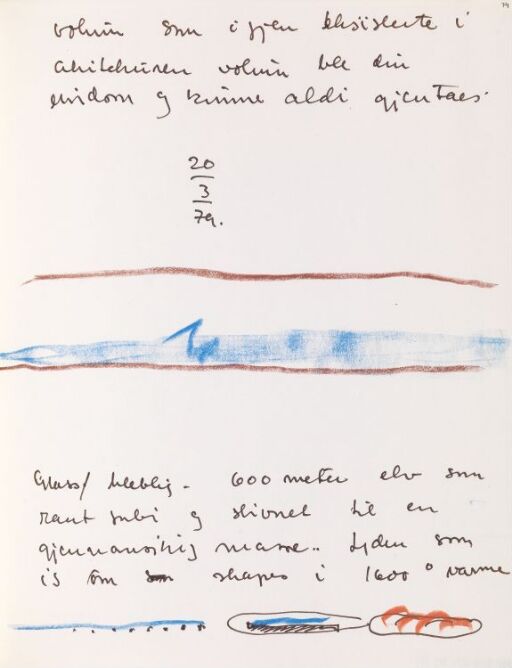 volum som igjen eksisterte i
arkitekturen volum ble din
eiendom og kunne aldri gjentaes.
20
3
79.
Glass/ 600 meter elv som
rant forbi og stivnet til en
gjennomsiktig masse.. Lyden som
is om som skapes i 1600° varme